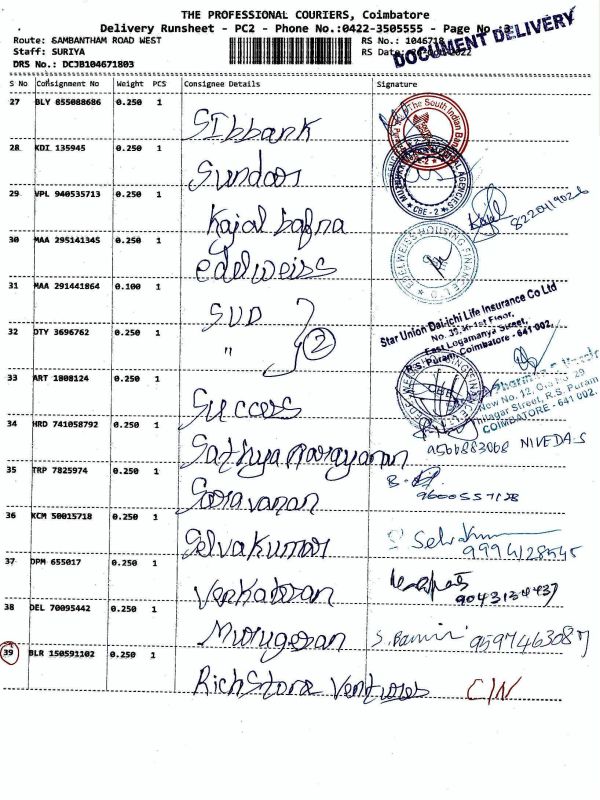 THE PROFESSIONAL COURIERS, Coimbatore
Delivery Runsheet - PC2 - Phone No.:0422-3505555 - Page No.:3
DOCUMENT DELIVERY
Route: SAMBANTHAM ROAD WEST
RS No.: 1046718
Staff: SURIYA
RS Date:
DRS No.: DCJB104671803
S No Consignment No Weight PCS Consignee Details Signature
27 BLY 855088686 0.250 1 SIbbank
The South Indian Bank
28 KDI 135945 0.250 1 Sundar
AGENCIES
CBE - 2
29 VPL 940535713 0.250 1 Kajal bafna
8220419026
30 MAA 295141345 0.250 1 edelweiss
EDELWEISS HOUSING FINANCE LTD
31 MAA 291441864 0.100 1 SUD
2
Star Union Dai-ichi Life Insurance Co Ltd
East Logamanya Street,
R.S. Puram, Coimbatore - 641 002.
32 DTY 3696762 0.250 1 "
33 ART 1808124 0.250 1 Success
New No. 12, Old No. 29
R.S. Puram
COIMBATORE - 641 002.
34 HRD 741058792 0.250 1 Sathya narayanan
9566883068 NIVEDA.S
35 TRP 7825974 0.250 1 Saravanan
9600557128
36 KCM 50015718 0.250 1 Selvakumar
9994128545
37 DPM 655017 0.250 1 Venkatesan
9043134437
38 DEL 70095442 0.250 1 Murugesan
9597463087
39 BLR 150591102 0.250 1 RichStone Ventures C/N